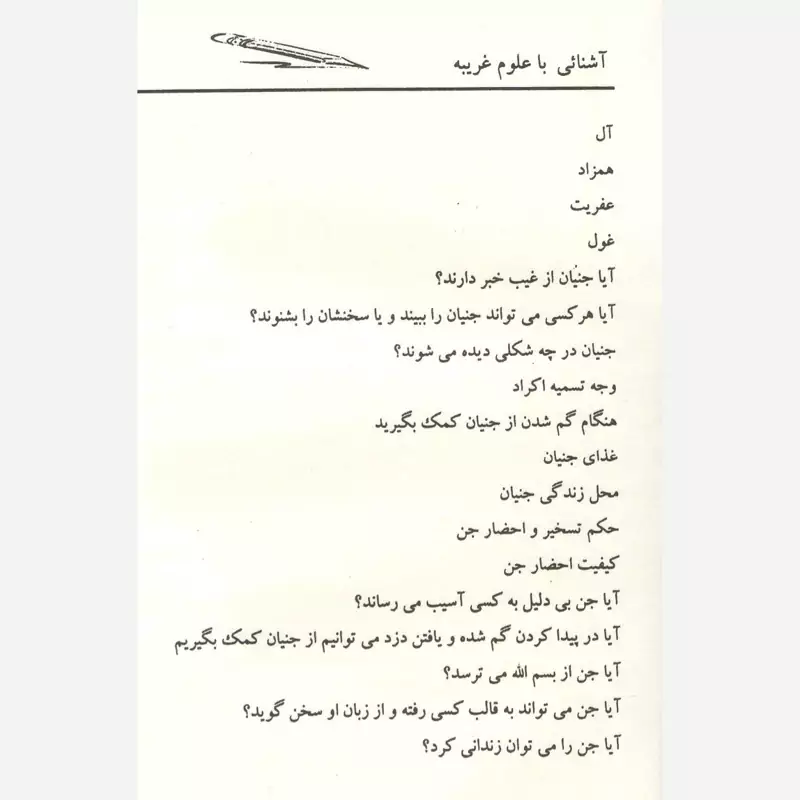 آشنائی با علوم غریبه
آل
همزاد
عفریت
غول
آیا جنیان از غیب خبر دارند؟
آیا هرکسی می تواند جنیان را ببیند و یا سخنشان را بشنوند؟
جنیان در چه شکلی دیده می شوند؟
وجه تسمیه اکراد
هنگام گم شدن از جنیان کمک بگیرید
غذای جنیان
محل زندگی جنیان
حکم تسخیر و احضار جن
کیفیت احضار جن
آیا جن بی دلیل به کسی آسیب می رساند؟
آیا در پیدا کردن گم شده و یافتن دزد می توانیم از جنیان کمک بگیریم
آیا جن از بسم الله می ترسد؟
آیا جن می تواند به قالب کسی رفته و از زبان او سخن گوید؟
آیا جن را می توان زندانی کرد؟